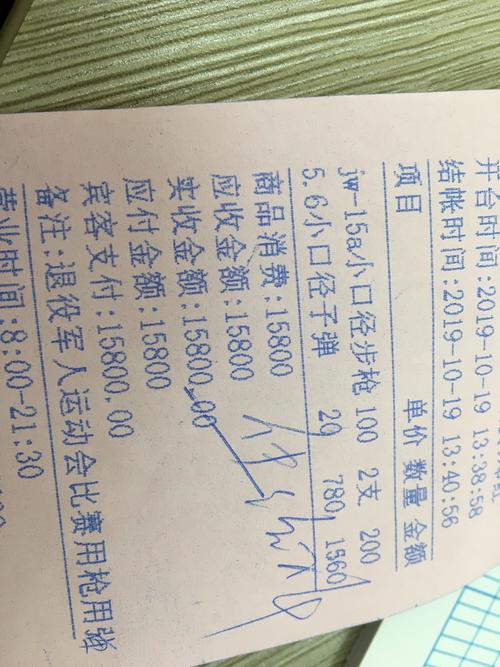 开台时间:2019-10-19 13:38:58
结帐时间:2019-10-19 13:40:56
项目 单价 数量 金额
jw-15a小口径步枪 100 2支 200
5.6小口径子弹 20 780 15600
商品消费:15800
应收金额:15800
实收金额:15800.00
应付金额:15800
宾客支付:15800.00
备注:退役军人运动会比赛用枪用弹
营业时间:8:00-21:30